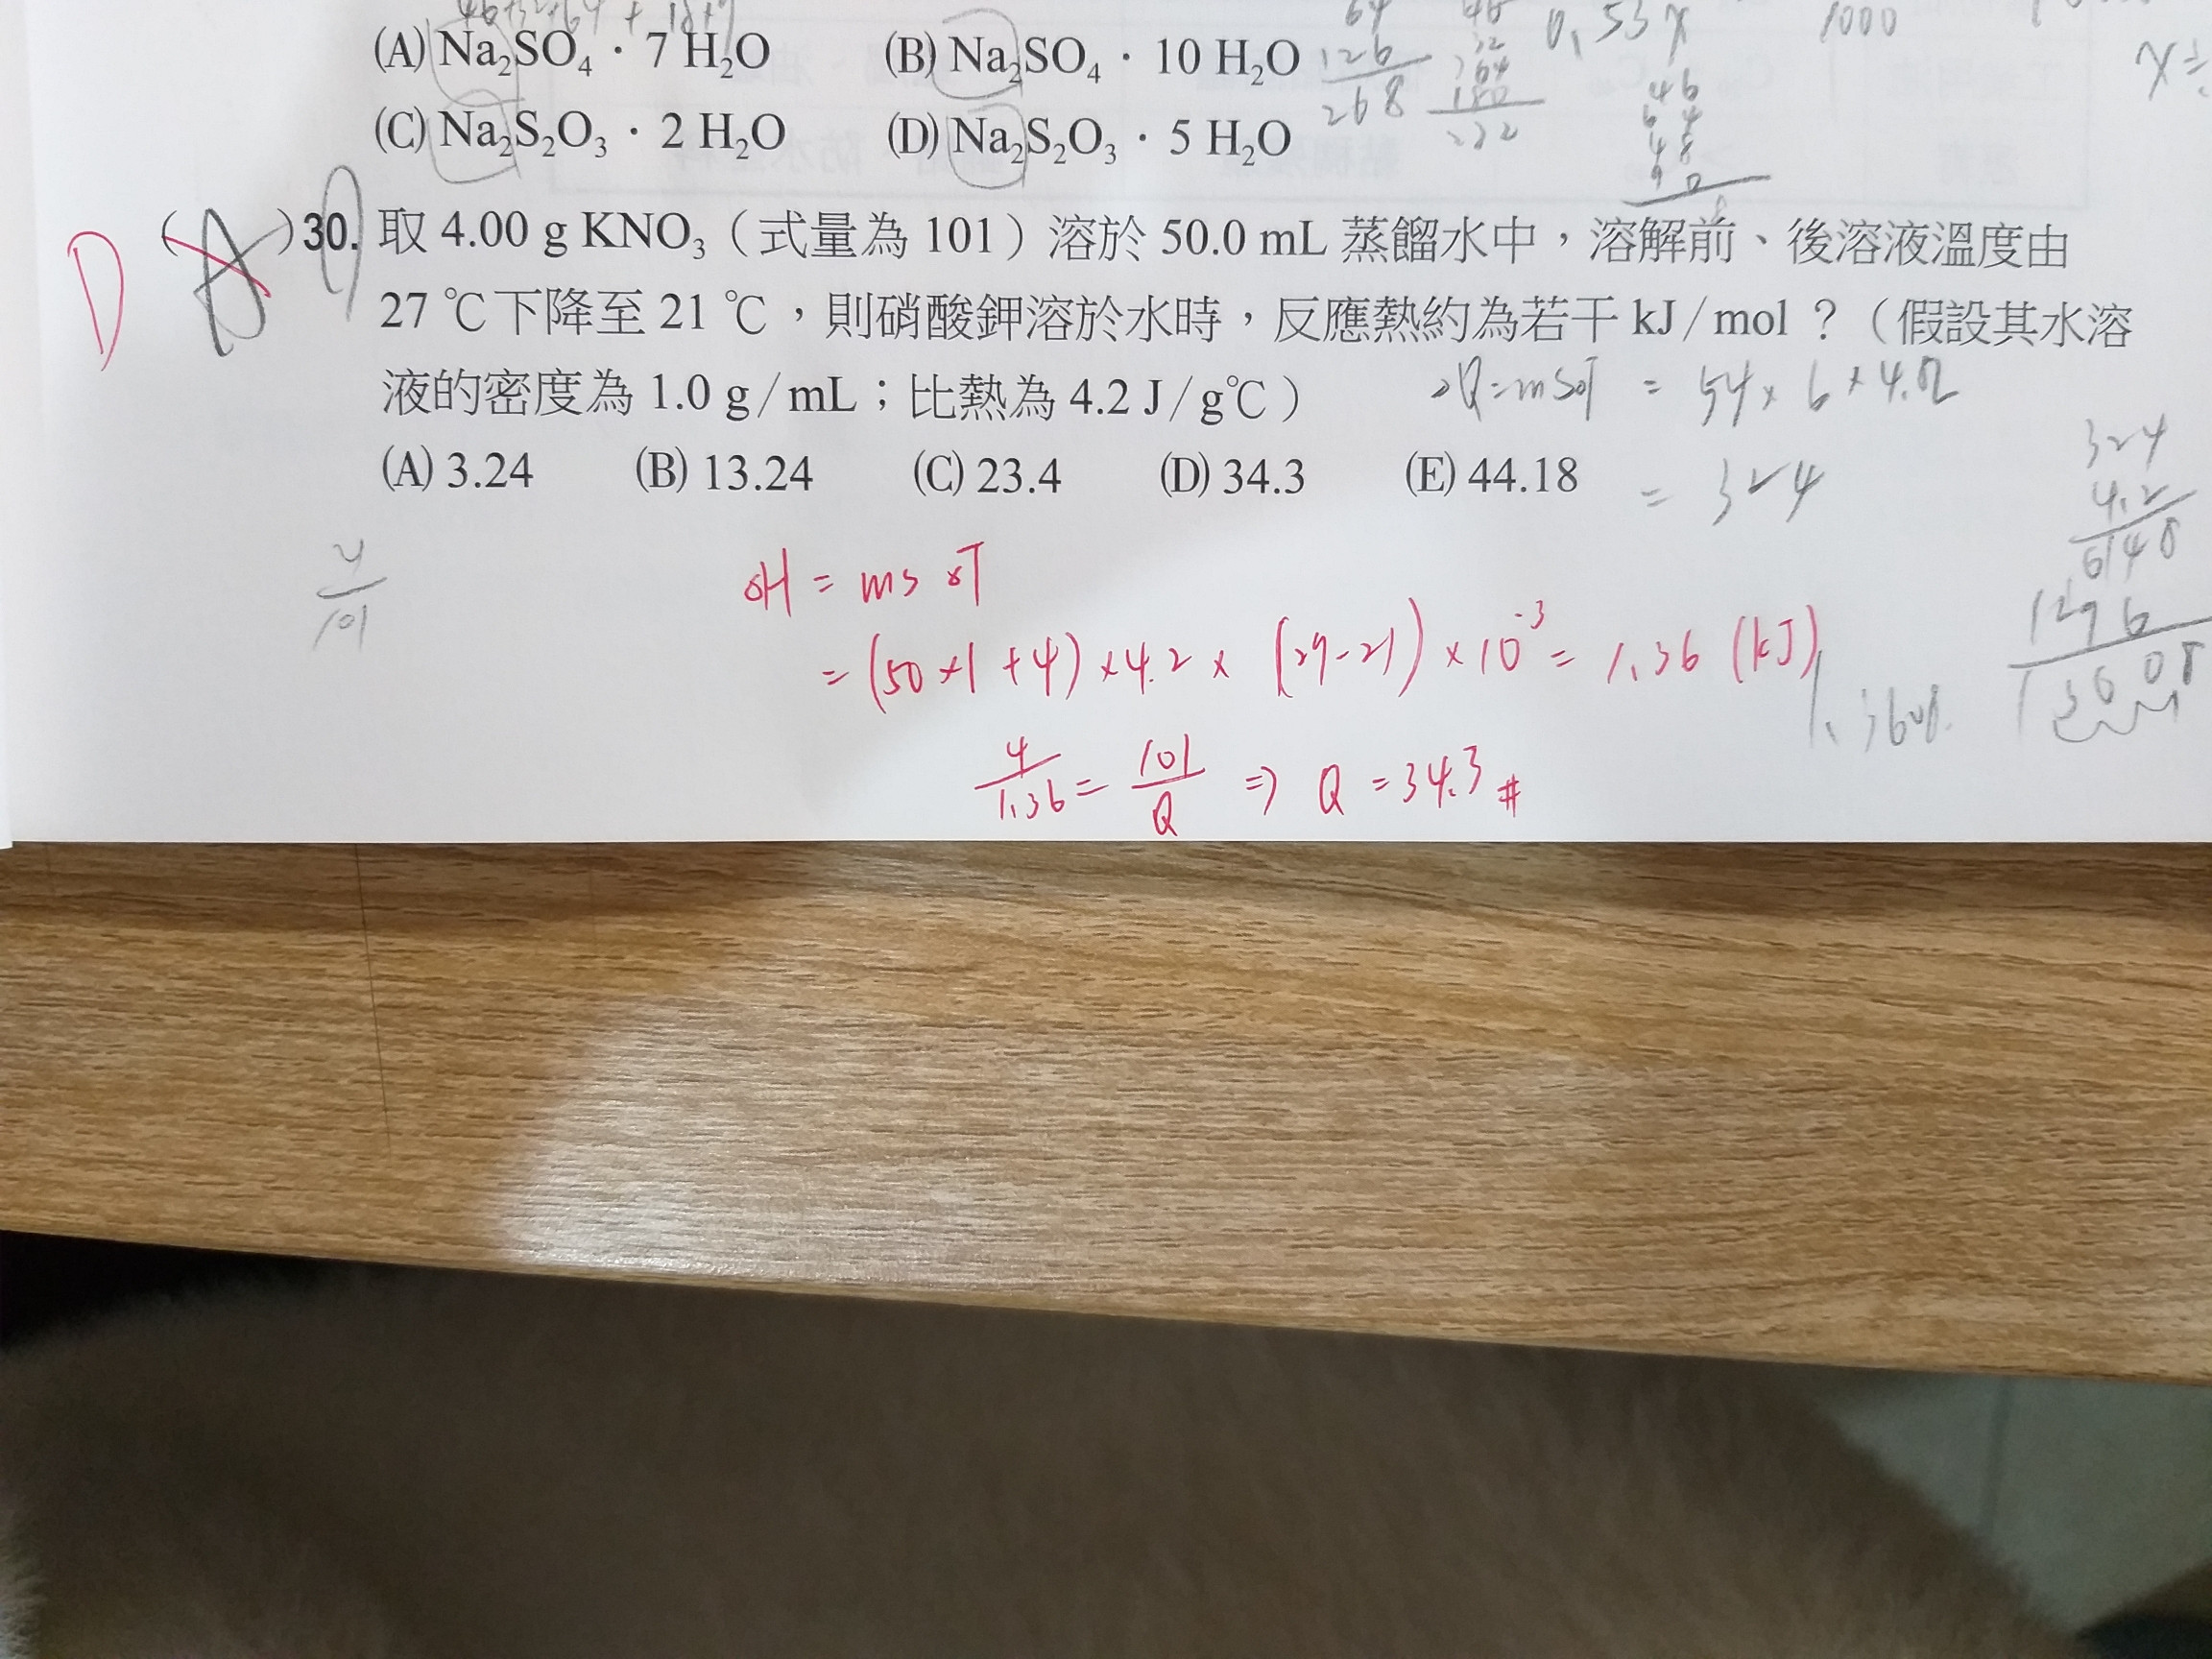 46+32+64+18×7
(A) Na₂SO₄・7 H₂O (B) Na₂SO₄・10 H₂O
(C) Na₂S₂O₃・2 H₂O (D) Na₂S₂O₃・5 H₂O
64
126
268
0.53x
1000
46
64
48
90
D
(A)30. 取 4.00 g KNO₃（式量為 101）溶於 50.0 mL 蒸餾水中，溶解前、後溶液溫度由
27 ℃下降至 21 ℃，則硝酸鉀溶於水時，反應熱約為若干 kJ/mol？（假設其水溶
液的密度為 1.0 g/mL；比熱為 4.2 J/g℃）
△Q=ms△T = 54×6×4.2
(A) 3.24 (B) 13.24 (C) 23.4 (D) 34.3 (E) 44.18
= 324
324
4.2
648
1296
13608
4/101
△H = ms △T
= (50×1+4)×4.2×(27-21)×10⁻³= 1.36 (kJ)
1.3608
4/1.36 = 101/Q ⇒ Q = 34.3 #